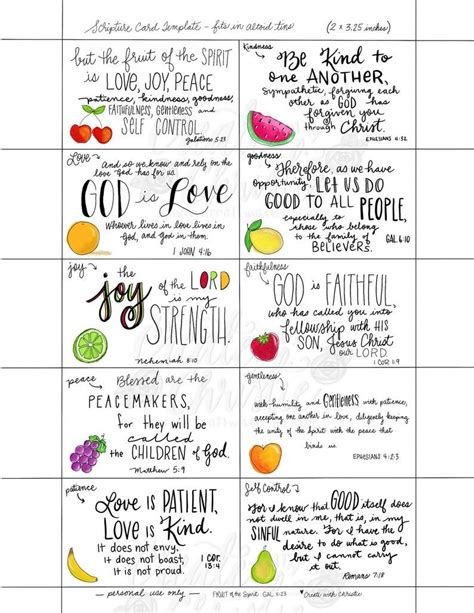 Scripture Card Template - fits in altoid tins (2 x 3.25 inches)
but the fruit of the SPIRIT
is LOVE, JOY, PEACE
patience, kindness, goodness,
FAITHFULNESS, GENTLENESS and
SELF CONTROL.
galatians 5:23
Kindness
Be Kind to
one ANOTHER,
Sympathetic, forgiving each
other as GOD has
forgiven you
through Christ.
EPHESIANS 4:32
Love
And so we know and rely on the
love God has for us.
GOD is Love
Whoever lives in love lives in
God, and God in them.
1 JOHN 4:16
goodness
Therefore, as we have
opportunity, LET US DO
GOOD TO ALL PEOPLE,
especially to
those who belong
to the family of
BELIEVERS. GAL 6:10
joy
the
joy of the LORD
is my
STRENGTH.
nehemiah 8:10
faithfulness
GOD is FAITHFUL,
who has called you into
fellowship with HIS
SON, Jesus Christ
our LORD.
1 COR 1:9
peace
Blessed are the
PEACEMAKERS,
for they will be
called
the CHILDREN of GOD.
Matthew 5:9
gentleness
with humility and Gentleness with patience,
accepting one another in love, diligently keeping
the unity of the Spirit with the peace that
binds us
EPHESIANS 4:2-3
patience
Love is PATIENT,
LOVE is Kind.
It does not envy,
it does not boast,
it is not proud.
1 COR.
13:4
Self Control
For I know that GOOD itself does
not dwell in me, that is, in my
SINFUL nature. For I have the
desire to do what is good,
but I cannot carry
it out.
Romans 7:18
personal use only
FRUIT of the Spirit GAL 5:23